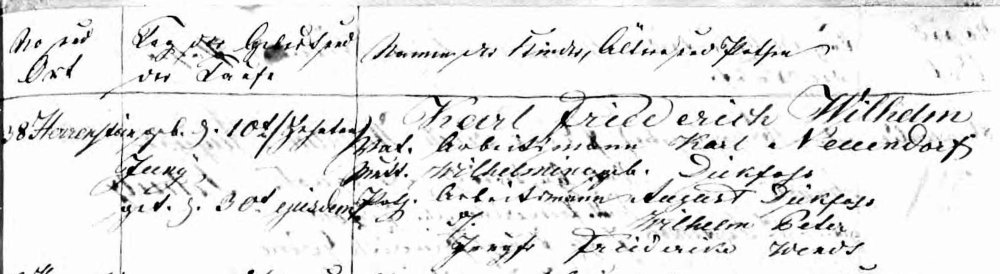 No und Ort
Tag der Geburt und der Taufe
Namen der Kinder, Ältern und Pathen
38 Herrenstein geb. d. 10t (Zehnten) Juny
get. d. 30t ejusdem
Karl Friederich Wilhelm
Vat. Arbeitsmann Karl Neuendorf
Mutt. Wilhelmine geb. Dickfoss
Path. Arbeitsmann August Dickfoss
Wilhelm Peter
Jungfr Friederike